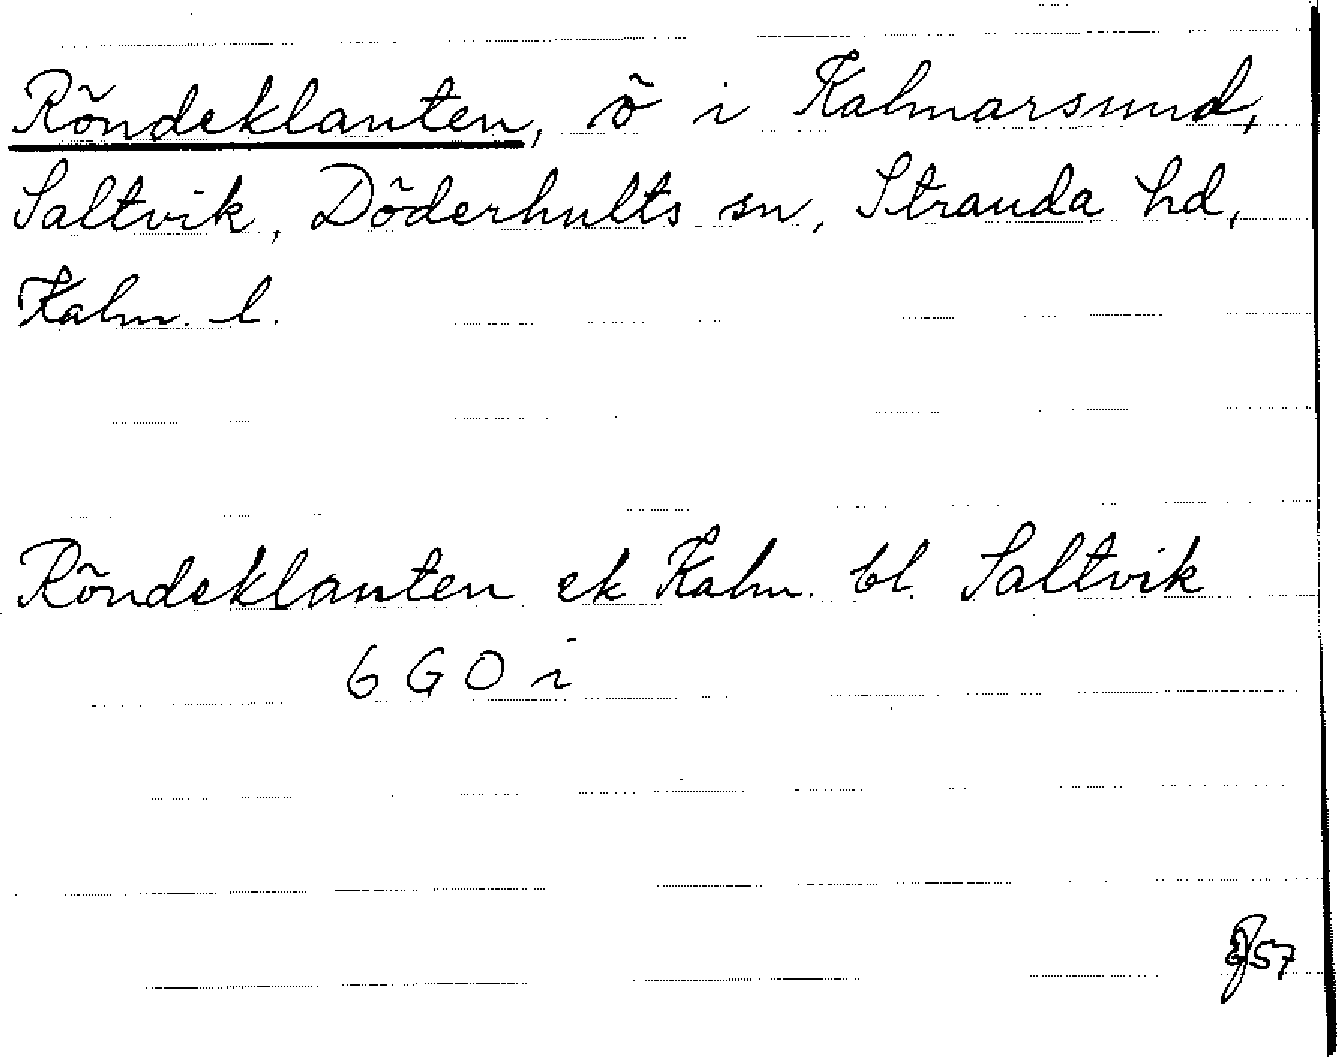 Röndeklanten, ö i Kalmarsund,
Saltvik, Döderhults sn, Stranda hd,
Kalm. l.
Röndeklanten ek Kalm. bl. Saltvik
6 G O i
57